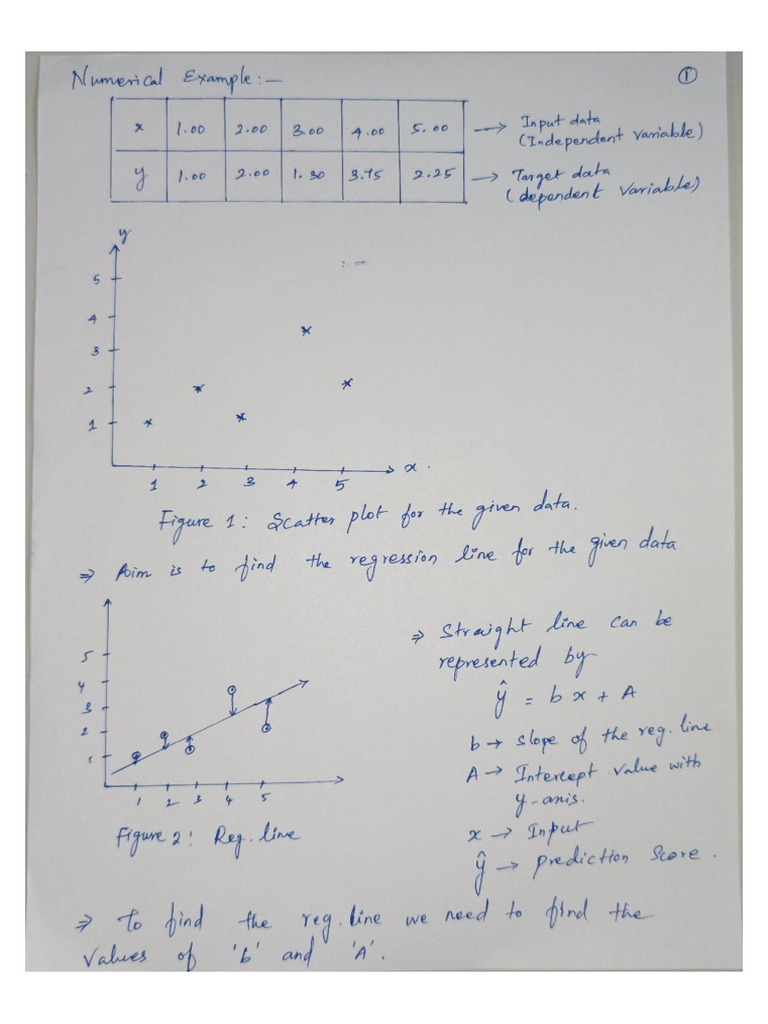 Numerical Example:-
①
x 1.00 2.00 3.00 4.00 5.00 → Input data
(Independent variable)
y 1.00 2.00 1.30 3.75 2.25 → Target data
(dependent variable)
y
5
4
3
2
1
1 2 3 4 5 x.
Figure 1: Scatter plot for the given data.
⇒ Aim is to find the regression line for the given data
5
4
3
2
1
1 2 3 4 5
Figure 2: Reg. line
⇒ Straight line can be
represented by
ŷ = b x + A
b → slope of the reg. line
A → Intercept value with
y-axis.
x → Input
ŷ → prediction score.
⇒ To find the reg. line we need to find the
values of 'b' and 'A'.